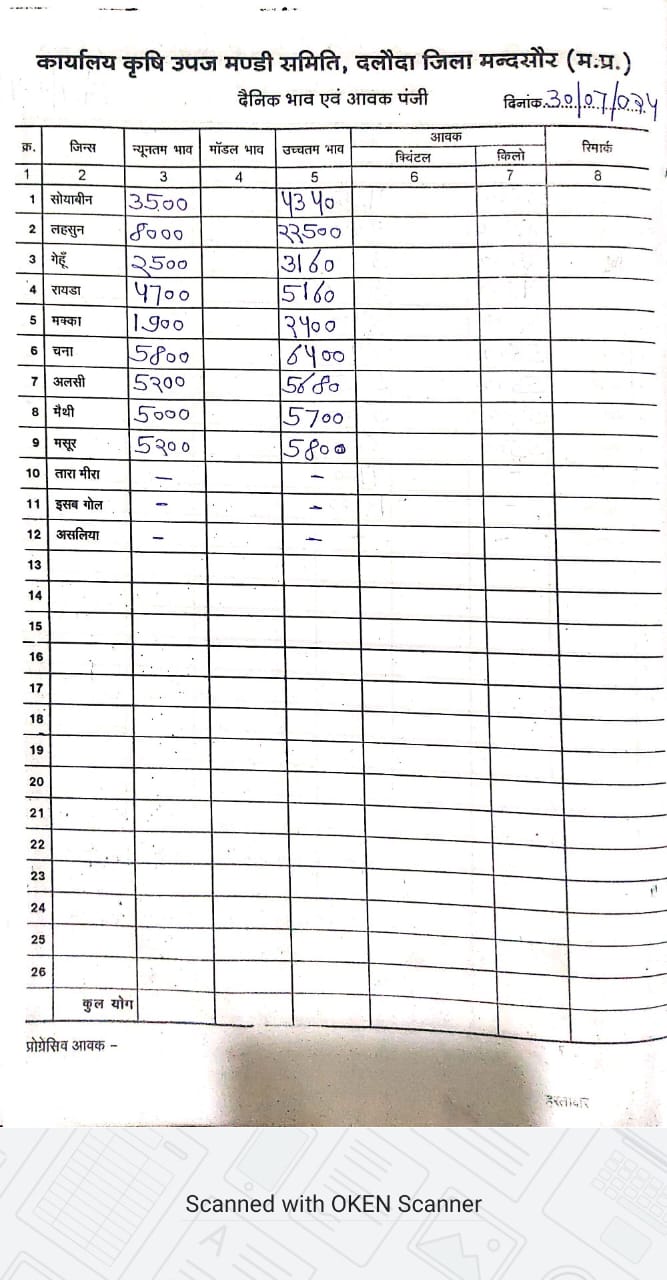 कार्यालय कृषि उपज मण्डी समिति, दलौदा जिला मन्दसौर (म.प्र.)
दैनिक भाव एवं आवक पंजी
दिनांक.30/07/024
क्र. जिन्स न्यूनतम भाव मॉडल भाव उच्चतम भाव आवक रिमार्क
क्विंटल किलो
1 2 3 4 5 6 7 8
1 सोयाबीन 3500 4340
2 लहसुन 8000 22500
3 गेहूँ 2500 3160
4 रायडा 4700 5160
5 मक्का 1900 2400
6 चना 5800 6400
7 अलसी 5200 5680
8 मैथी 5000 5700
9 मसूर 5200 5800
10 तारा मीरा – –
11 इसब गोल – –
12 असलिया – –
13
14
15
16
17
18
19
20
21
22
23
24
25
26
कुल योग
प्रोग्रेसिव आवक –
Scanned with OKEN Scanner